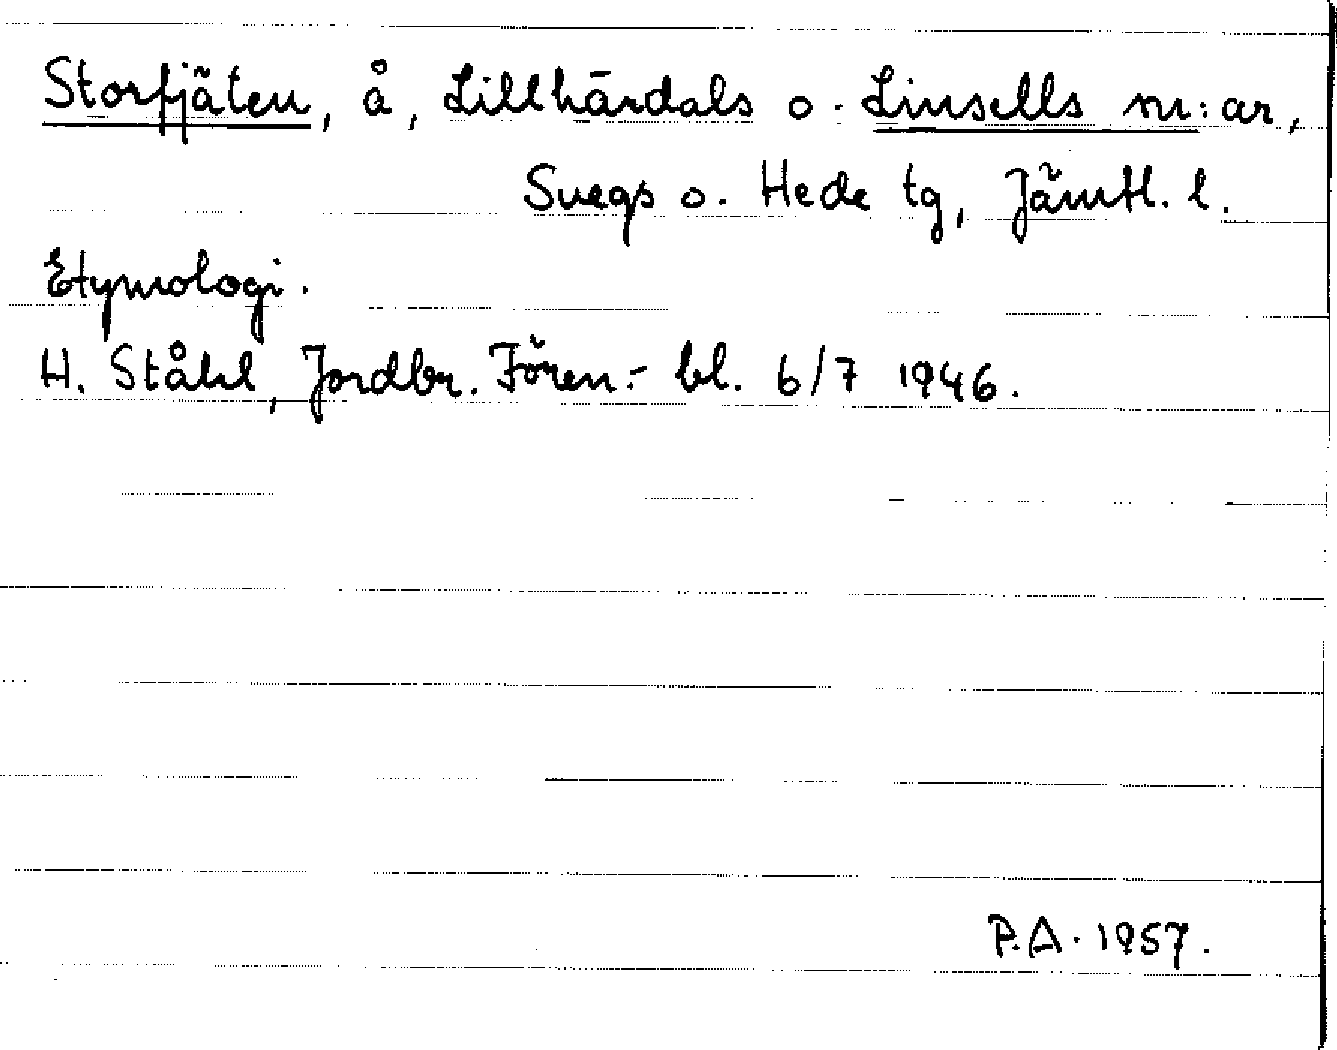 Storfjäten, å, Lillhärdals o. Linsells sn:ar,
Svegs o. Hede tg, Jämtl. l.
Etymologi.
H. Ståhl, Jordbr. Fören.- bl. 6/7 1946.
P.A. 1957.